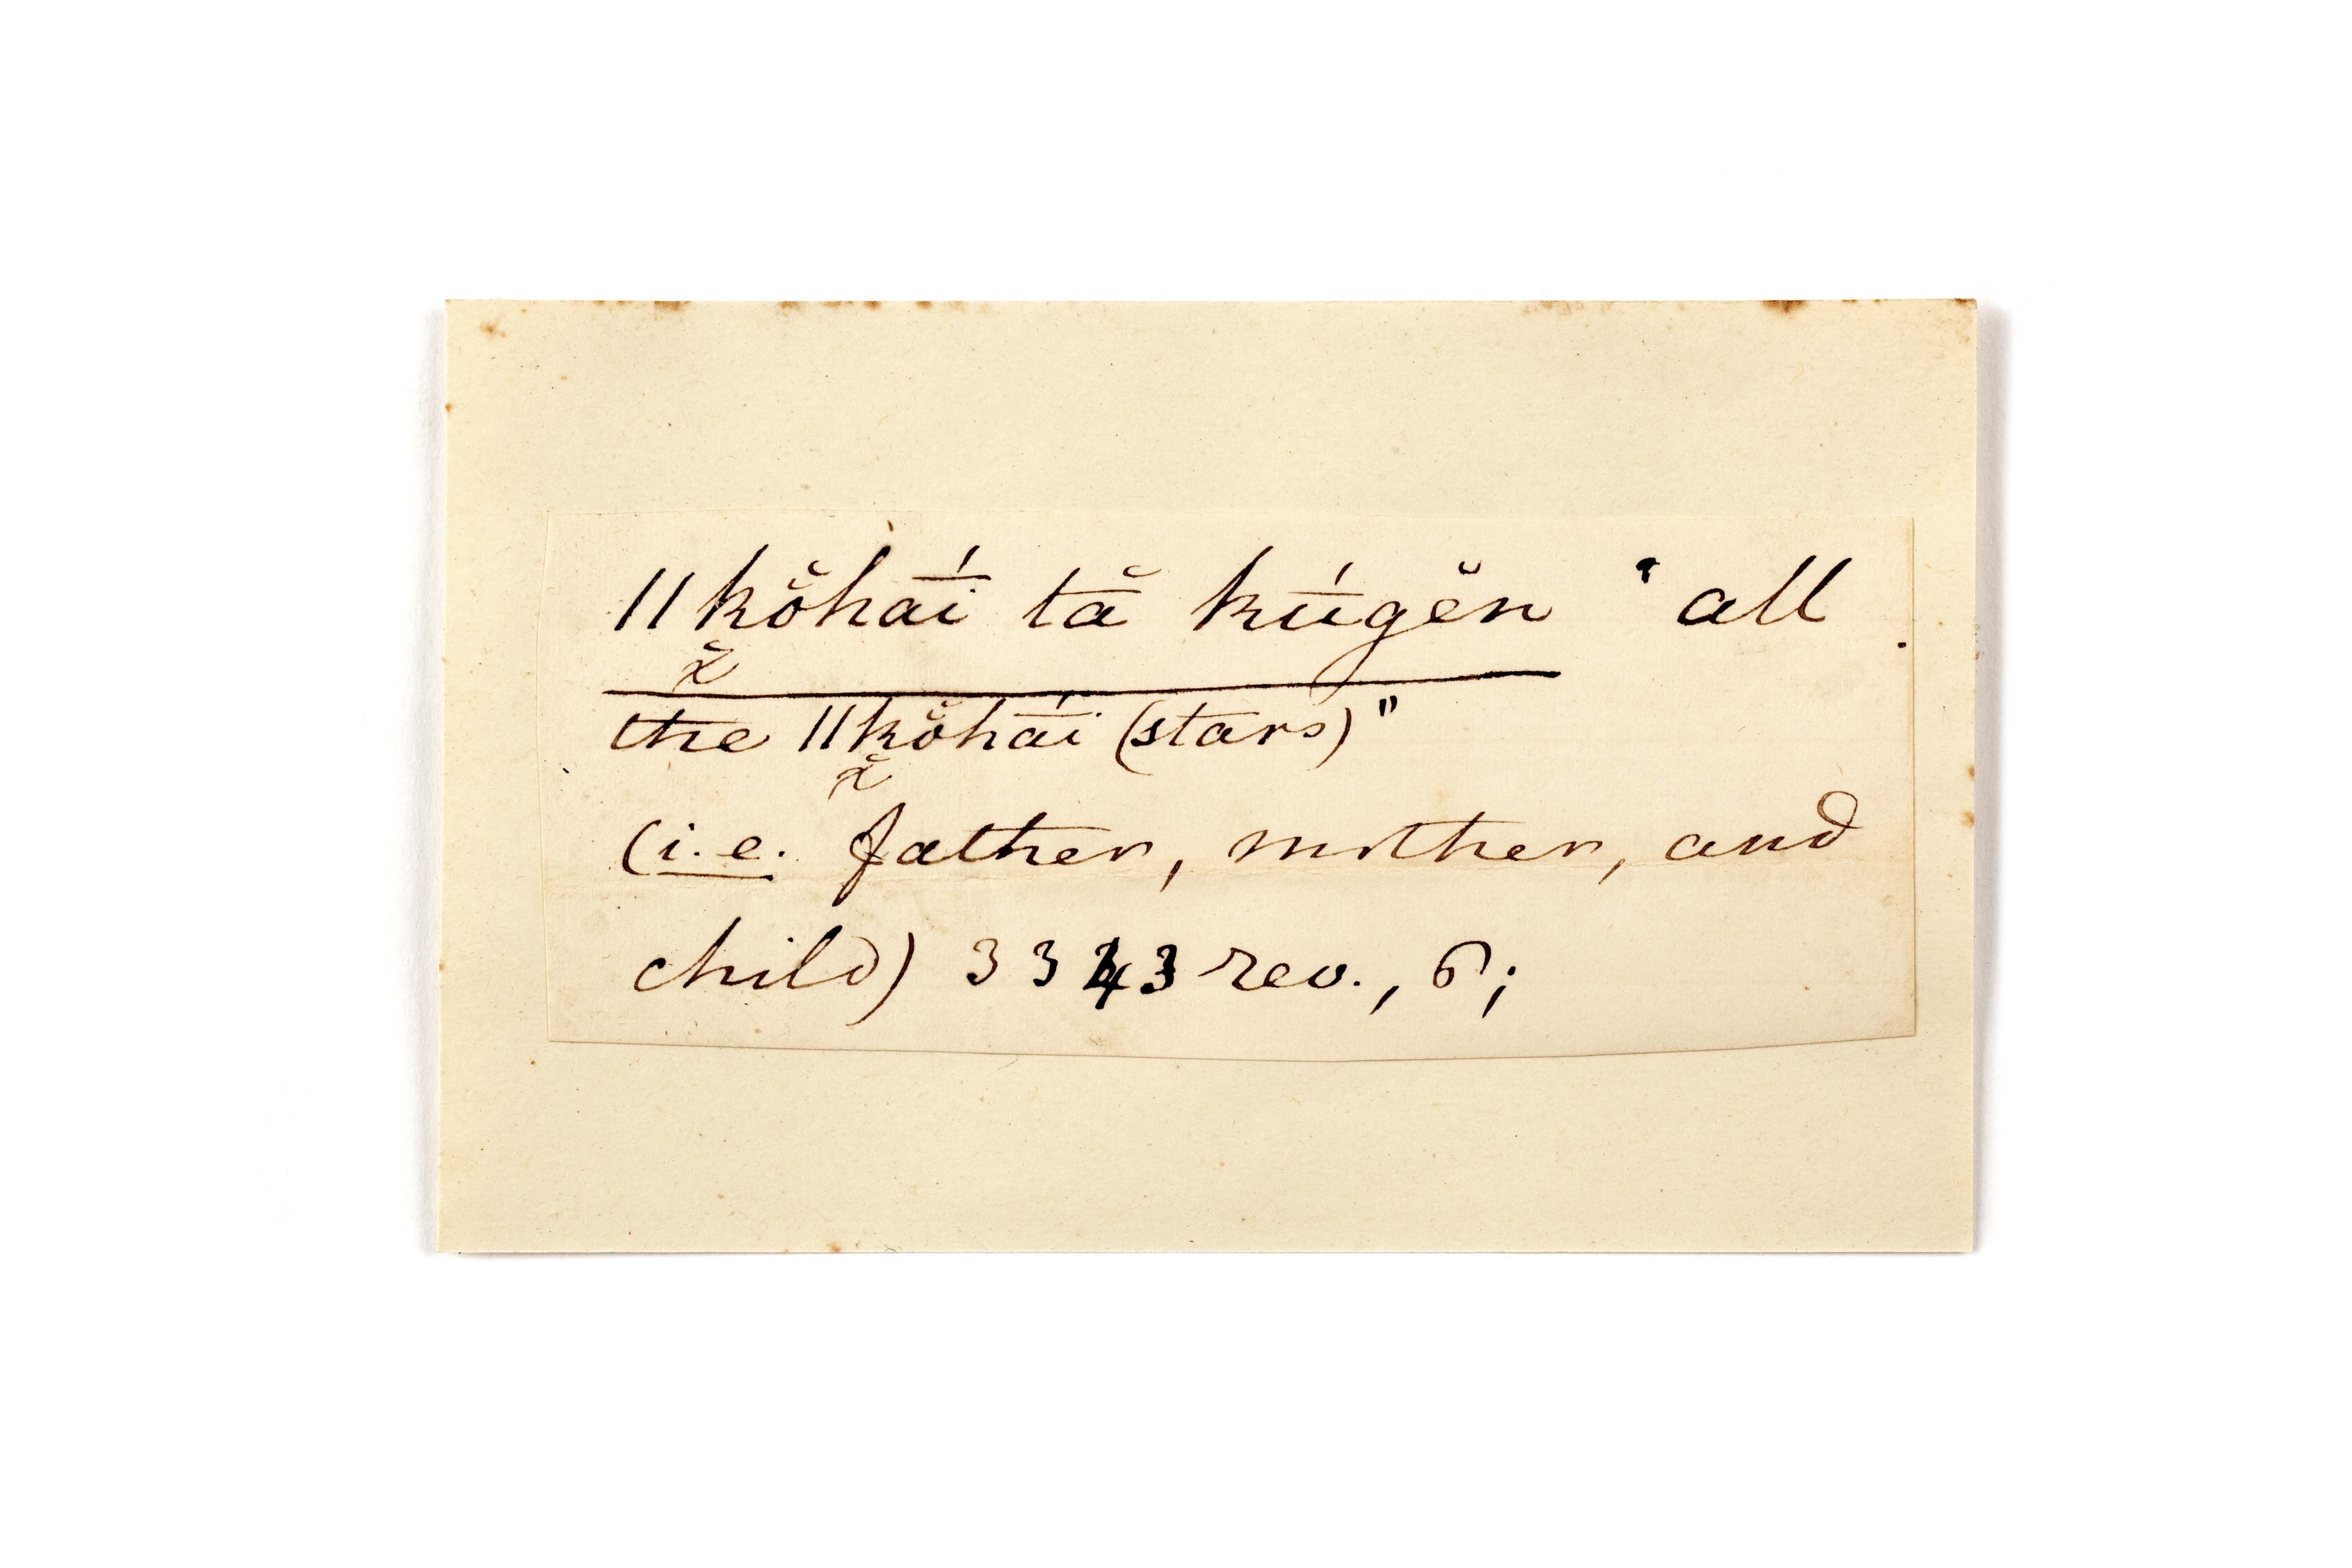 ǁkŏ̤hai̅́ tă kṹgĕn " all
the ǁkŏ̤hai̅́ (stars)"
(i.e. father, mother, and
child) 3343 rev., 6;